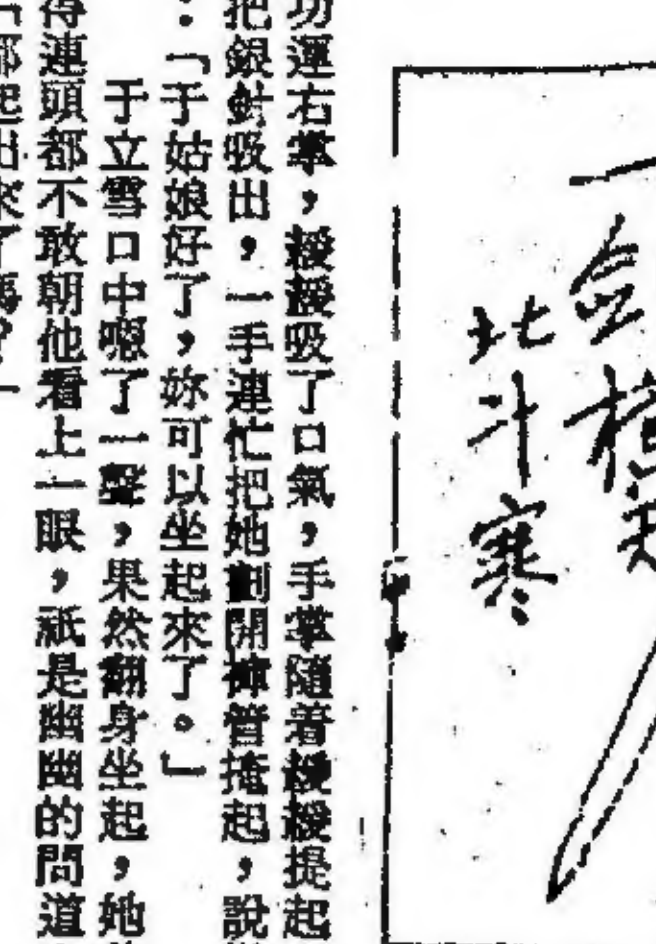 北斗寒
功運右掌，緩緩吸了口氣，手掌隨着緩緩提起
把銀針吸出，一手連忙把她劃開褲管掩起，說
：「于姑娘好了，妳可以坐起來了。」
于立雪口中嗯了一聲，果然翻身坐起，她
得連頭都不敢朝他看上一眼，祇是幽幽的問道
「都起出來了嗎？」